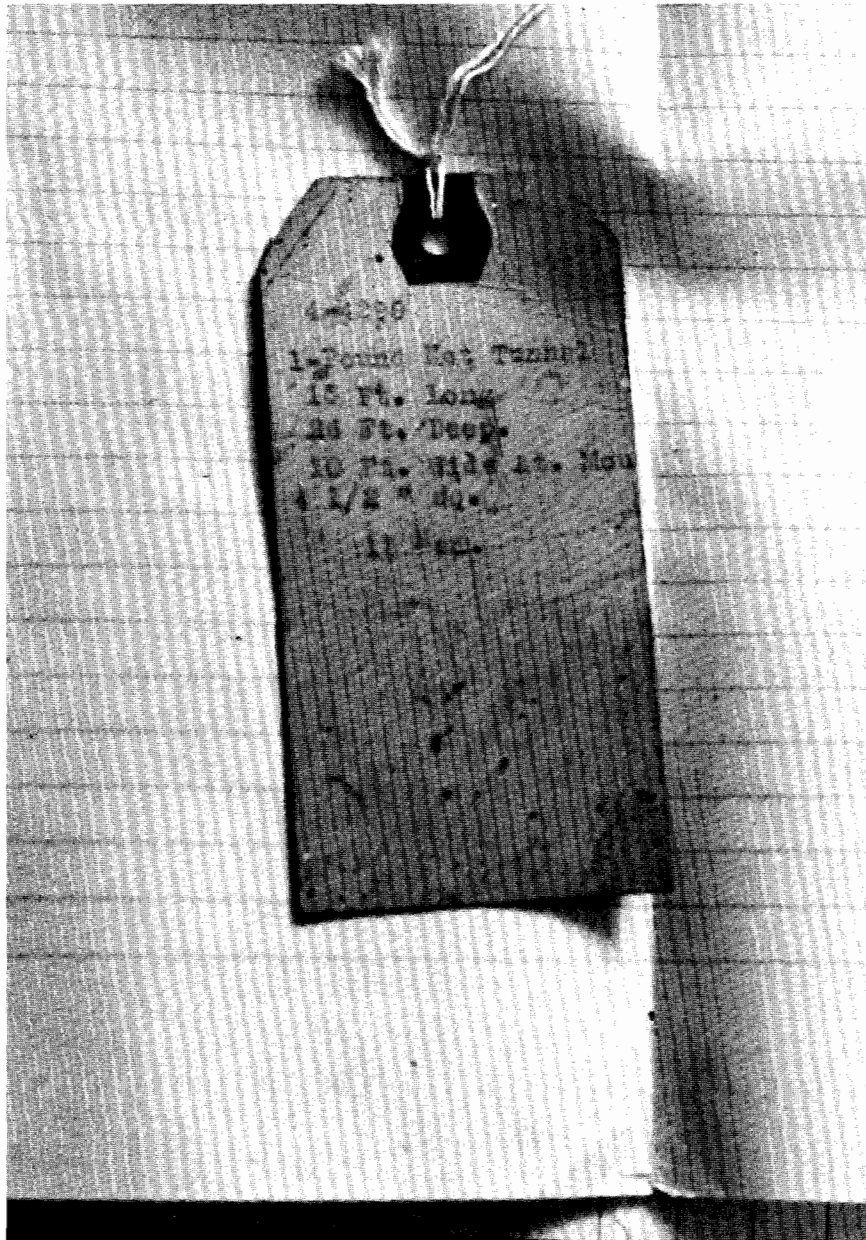 1-Pound Net Tunnel
15 Ft. Long
Ft. Deep.
10 Ft. Wide At. Mou
1/2 " Sq.